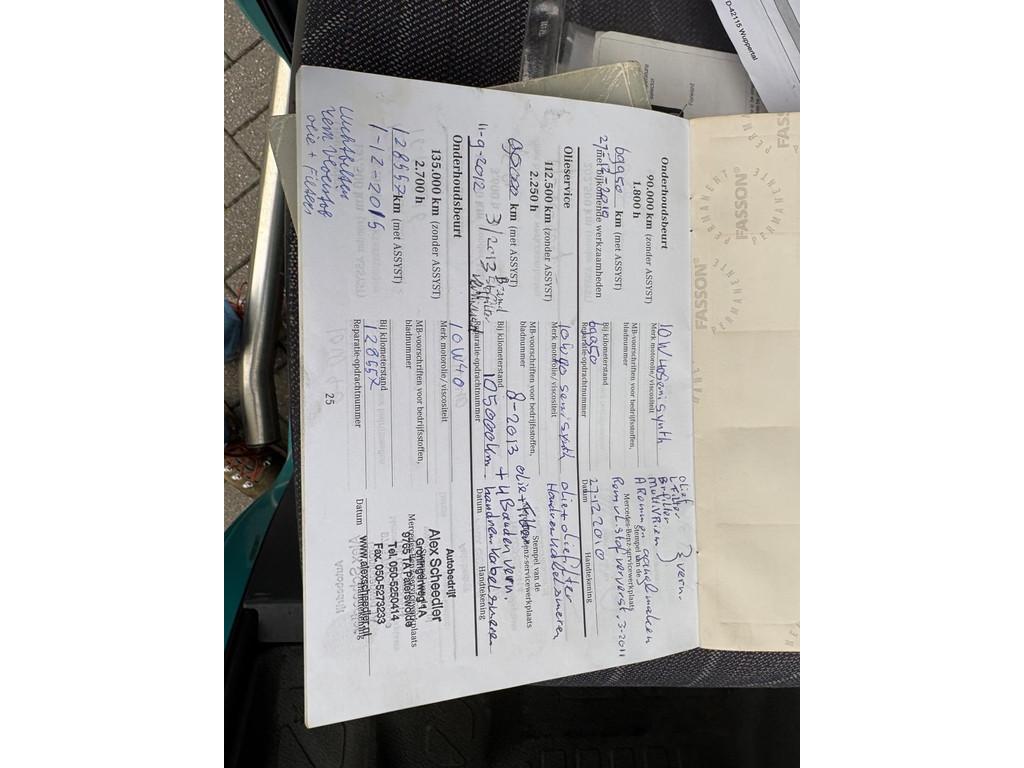 D-42115 Wuppertal
FASSON®
PERMANENT
FASSON®
PERMANENTE
Onderhoudsbeurt
90.000 km (zonder ASSYST)
1.800 h
69950 km (met ASSYST)
27-12-2010
met bijkomende werkzaamheden
10W40 semi synth
Merk motorolie/viscositeit
MB-voorschriften voor bedrijfsstoffen,
bladnummer
Bij kilometerstand
69950
Reparatie-opdrachtnummer
olief
L Filter
Br filter
multiVRiem } vern.
A Rommen gangbaar maken
Stempel van de
Mercedes-Benz-servicewerkplaats
Remvl. stof ververst. 3-2011
27-12 2010
Datum
Handtekening
Olieservice
112.500 km (zonder ASSYST)
2.250 h
90000 km (met ASSYST)
11-9-2012
3/2013
Brand
stoffilter
10w40 semi synth
Merk motorolie/viscositeit
MB-voorschriften voor bedrijfsstoffen,
bladnummer
Bij kilometerstand
Reparatie-opdrachtnummer
olie + oliefilter
Handremkabel smeren
Stempel van de
Mercedes-Benz-servicewerkplaats
8-2013 olie + Filter
+ 4 Banden vern.
105000km handremkabel smeren
Datum
Handtekening
Onderhoudsbeurt
135.000 km (zonder ASSYST)
2.700 h
128557 km (met ASSYST)
1-12-2015
Luchtfilter
rem vloeistof
olie + Filters
10W40
Merk motorolie/viscositeit
MB-voorschriften voor bedrijfsstoffen,
bladnummer
Bij kilometerstand
128557
Reparatie-opdrachtnummer
Autobedrijf
Alex Scheedler
Groningerweg 1A
9765 TA Paterswolde
Tel. 050-5250414
Fax. 050-5273233
www.alexscheedler.nl
Datum
Handtekening
25